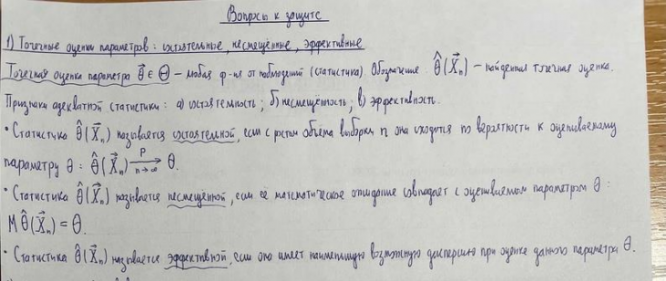 Вопросы к защите
1) Точечные оценки параметров: состоятельные, несмещённые, эффективные
Точечная оценка параметра θ⃗ ∈ Θ – любая ф-ия от наблюдений (статистика). Обозначение θ̂(X⃗ₙ) – найденная точечная оценка.
Признаки адекватной статистики: а) состоятельность; б) несмещённость; в) эффективность.
• Статистика θ̂(X⃗ₙ) называется состоятельной, если с ростом объёма выборки n она сходится по вероятности к оцениваемому
параметру θ: θ̂(X⃗ₙ) P→ n→∞ θ.
• Статистика θ̂(X⃗ₙ) называется несмещённой, если её математическое ожидание совпадает с оцениваемым параметром θ:
Mθ̂(X⃗ₙ) = θ.
• Статистика θ̂(X⃗ₙ) называется эффективной, если она имеет наименьшую возможную дисперсию при оценке данного параметра θ.